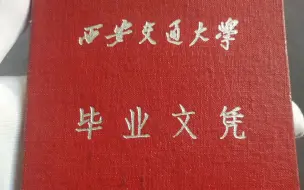 西安交通大学
毕业文凭